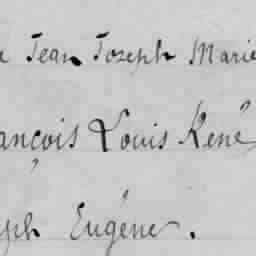 Jean Joseph Marie
ançois Louis René
ph Eugène.